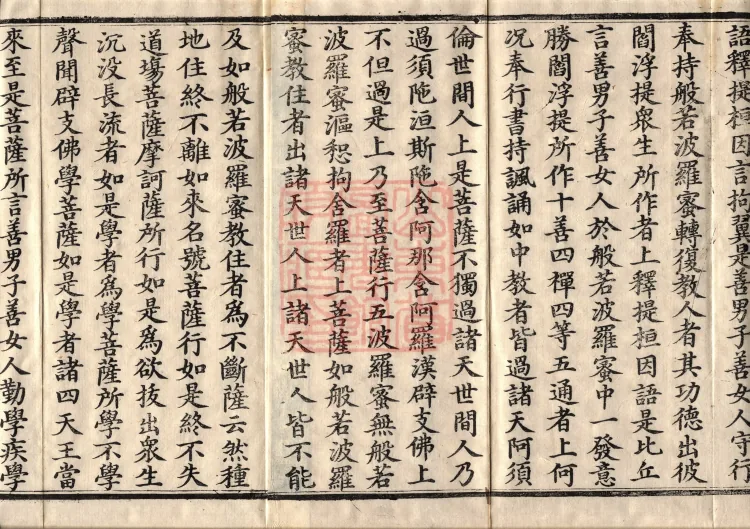 語釋提桓因言拘翼是善男子善女人守行
奉持般若波羅蜜轉復教人者其功德出彼
閻浮提衆生所作者上釋提桓因語是比丘
言善男子善女人於般若波羅蜜中一發意
勝閻浮提所作十善四禪四等五通者上何
况奉行書持諷誦如中教者皆過諸天阿須
倫世間人上是菩薩不獨過諸天世間人乃
過須陁洹斯陁含阿那含阿羅漢辟支佛上
不但過是上乃至菩薩行五波羅蜜無般若
波羅蜜漚惒拘舍羅者上菩薩如般若波羅
蜜教住者出諸天世人上諸天世人皆不能
及如般若波羅蜜教住者為不斷薩云然種
地住終不離如來名號菩薩行如是終不失
道塲菩薩摩訶薩所行如是為欲拔出衆生
沉没長流者如是學者為學菩薩所學不學
聲聞辟支佛學菩薩如是學者諸四天王當
來至是菩薩所言善男子善女人勤學疾學